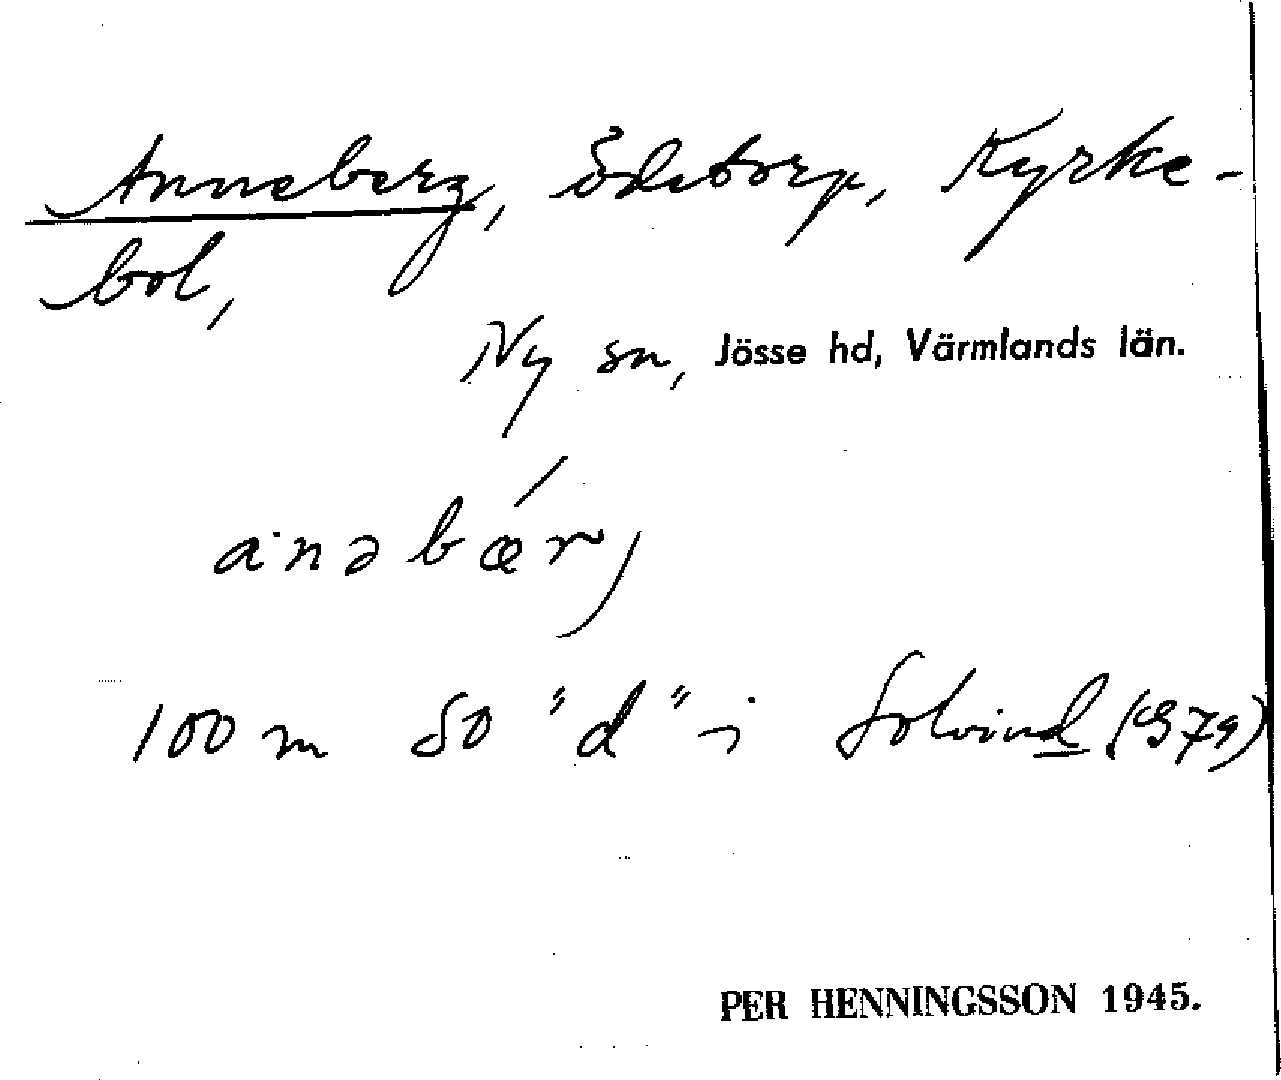 Anneberg, Ödetorp, Kyrke-
bol,
Ny sn, Jösse hd, Värmlands län.
a'nəbǽr,
100 m SO "d" i Solvind (G79)
PER HENNINGSSON 1945.